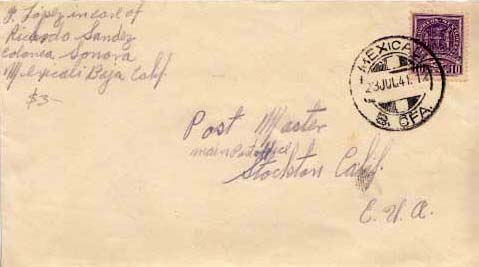 F. López in care of
Ricardo Sandez
Colonia Sonora
Mexicali Baja Calif
$3—
MEXICALI
23 JUL 41. 12
B. CFA.
10
Post Master
main Post office
Stockton Calif.
E. U. A.